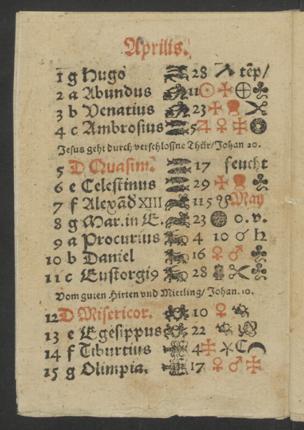 Aprilis.
1 g Hugo 28 temp/
2 a Abundus 11
3 b Venatius 23
4 c Ambrosius 5
Jesus geht durch verschlossne Thür/Johan 20.
5 D Quasim. 17 feucht
6 e Celestinus 29
7 f XIII 11 May
8 g Mar. in E. 23 o. v.
9 a Procurius 4 10
10 b Daniel 16
11 c Eustorgi9 28
Vom guten Hirten vnd Mietling/Johan. 10.
12 D Misericor. 10
13 e Egesippus 22
14 f Tiburtius 4
15 g Olimpia. 17